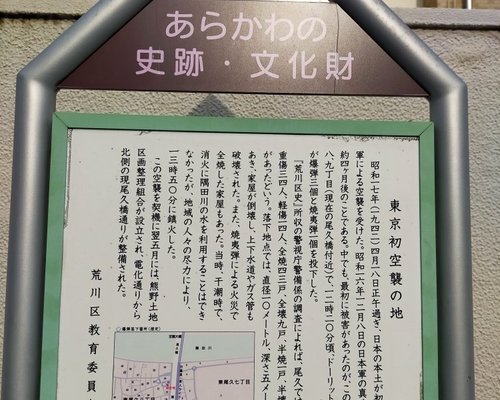 あらかわの
史跡・文化財
東京初空襲の地
昭和一七年(一九四二)四月一八日正午過ぎ、日本の本土が初
軍による空襲を受けた。昭和一六年一二月八日の日本軍の真
約四ヶ月後のことである。中でも、最初に被害があったのが、この
八、九丁目(現在の尾久橋付近)で、一二時二〇分頃、ドーリット
が爆弾三個と焼夷弾一個を投下した。
『荒川区史』所収の警視庁警備係の調査によれば、尾久では
重傷三四人、軽傷一四人、全焼四三戸、全壊九戸、半焼一戸、半壊
があったという。落下地点では、直径一〇メートル、深さ五メー
あき、家屋が倒壊し、上下水道やガス管も
破壊された。また、焼夷弾による火災で
全焼した家屋もあった。当時、干潮時で、
消火に隅田川の水を利用することはでき
なかったが、地域の人々の尽力により、
一三時五〇分に鎮火した。
この空襲を契機に翌五月には、熊野土地
区画整理組合が設立され、電化通りから
北側の現尾久橋通りが整備された。
荒川区教育委員
東尾久七丁目